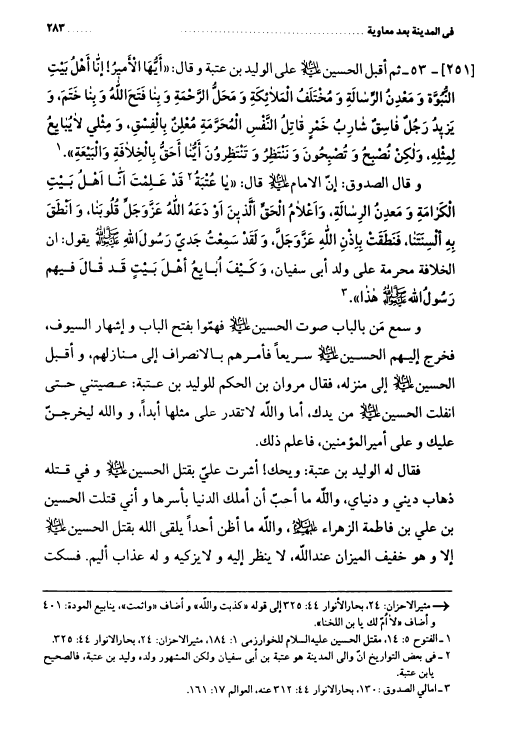 في المدينة بعد معاوية ............................................................ ٢٨٣
[٢٥١] - ٥٣ـ ثم أقبل الحسين ﷺ على الوليد بن عتبة و قال: «أَيُّهَا الْأَمِيرُ! إِنَّا أَهْلُ بَيْتِ
النُّبُوَّةِ وَ مَعْدِنُ الرِّسالَةِ وَ مُخْتَلَفُ الْمَلائِكَةِ وَ مَحَلُّ الرَّحْمَةِ وَ بِنا فَتَحَ اللهُ وَ بِنا خَتَمَ، وَ
يَزِيدُ رَجُلٌ فاسِقٌ شارِبُ خَمْرٍ قاتِلُ النَّفْسِ الْمُحَرَّمَةِ مُعْلِنٌ بِالْفِسْقِ، وَ مِثْلِي لايُبايِعُ
لِمِثْلِهِ، وَلكِنْ نُصْبِحُ وَ تُصْبِحُونَ وَ نَنْتَظِرُ وَ تَنْتَظِرُونَ أَيُّنا أَحَقُّ بِالْخِلافَةِ وَالْبَيْعَةِ».١
و قال الصدوق: إنّ الامام ﷺ قال: «يا عُتْبَةُ٢ قَدْ عَلِمْتَ أَنّا أَهْلُ بَيْتِ
الْكَرامَةِ وَ مَعْدِنُ الرِّسالَةِ، وَأَعْلامُ الْحَقِّ الَّذِينَ أَوْدَعَهُ اللهُ عَزَّوَجَلَّ قُلُوبَنا، وَ أَنْطَقَ
بِهِ أَلْسِنَتَنا، فَنَطَقَتْ بِإِذْنِ اللهِ عَزَّوَجَلَّ، وَ لَقَدْ سَمِعْتُ جَدّي رَسُولَ اللهِ ﷺ يقول: ان
الخلافة محرمة على ولد أبى سفيان، وَ كَيْفَ أُبايِعُ أَهْلَ بَيْتٍ قَد قالَ فيهِم
رَسُولُ اللهِ ﷺ هذا».٣
و سمع مَن بالباب صوت الحسين ﷺ فهمّوا بفتح الباب و إشهار السيوف،
فخرج إليهم الحسين ﷺ سريعاً فأمرهم بالانصراف إلى منازلهم، و أقبل
الحسين ﷺ إلى منزله، فقال مروان بن الحكم للوليد بن عتبة: عصيتني حتى
انفلت الحسين ﷺ من يدك، أما والله لاتقدر على مثلها أبداً، و والله ليخرجنّ
عليك و على أميرالمؤمنين، فاعلم ذلك.
فقال له الوليد بن عتبة: ويحك! أشرت عليّ بقتل الحسين ﷺ و في قتله
ذهاب ديني و دنياي، والله ما أحبّ أن أملك الدنيا بأسرها و أني قتلت الحسين
بن علي بن فاطمة الزهراء ﷺ، والله ما أظن أحداً يلقى الله بقتل الحسين ﷺ
إلا و هو خفيف الميزان عندالله، لا ينظر إليه و لايزكيه و له عذاب أليم. فسكت
→ مثيرالاحزان: ٢٤، بحارالأنوار ٤٤: ٣٢٥ إلى قوله «كذبت والله» و أضاف «واثمت»، ينابيع المودة: ٤٠١
و أضاف «لا أُمّ لك يا بن اللخنا».
١ ـ الفتوح ٥: ١٤، مقتل الحسين عليه‌السلام للخوارزمى ١: ١٨٤، مثيرالاحزان: ٢٤، بحارالانوار ٤٤: ٣٢٥.
٢ ـ فى بعض التواريخ انّ والى المدينة هو عتبة بن أبى سفيان ولكن المشهور ولد، وليد بن عتبة، فالصحيح
يابن عتبة.
٣ ـ امالي الصدوق: ١٣٠، بحارالانوار ٤٤: ٣١٢ عنه، العوالم ١٧: ١٦١.